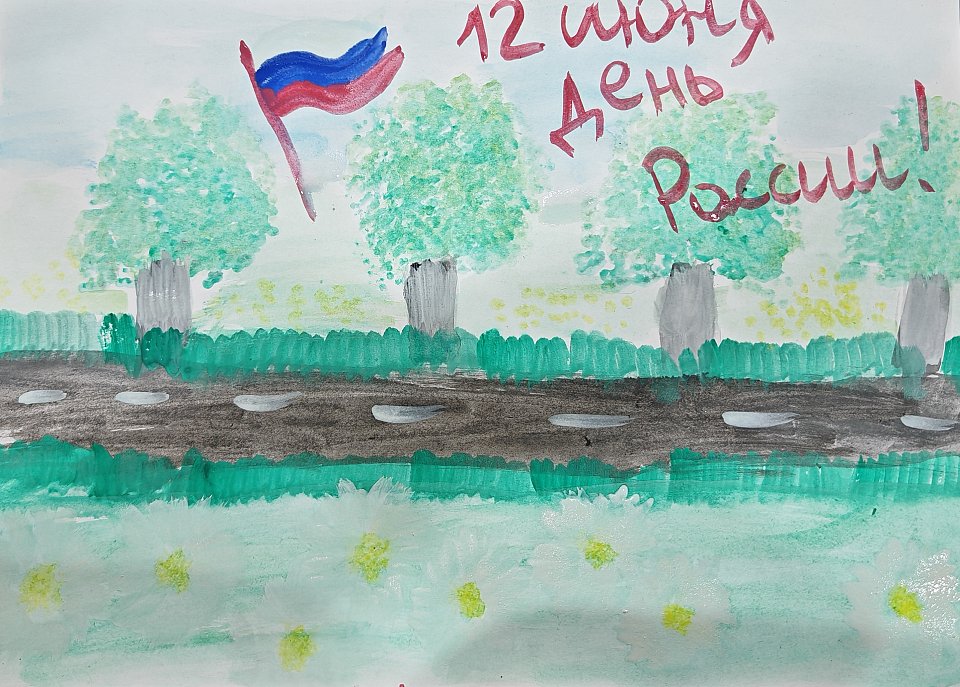 12 июня
День
России!